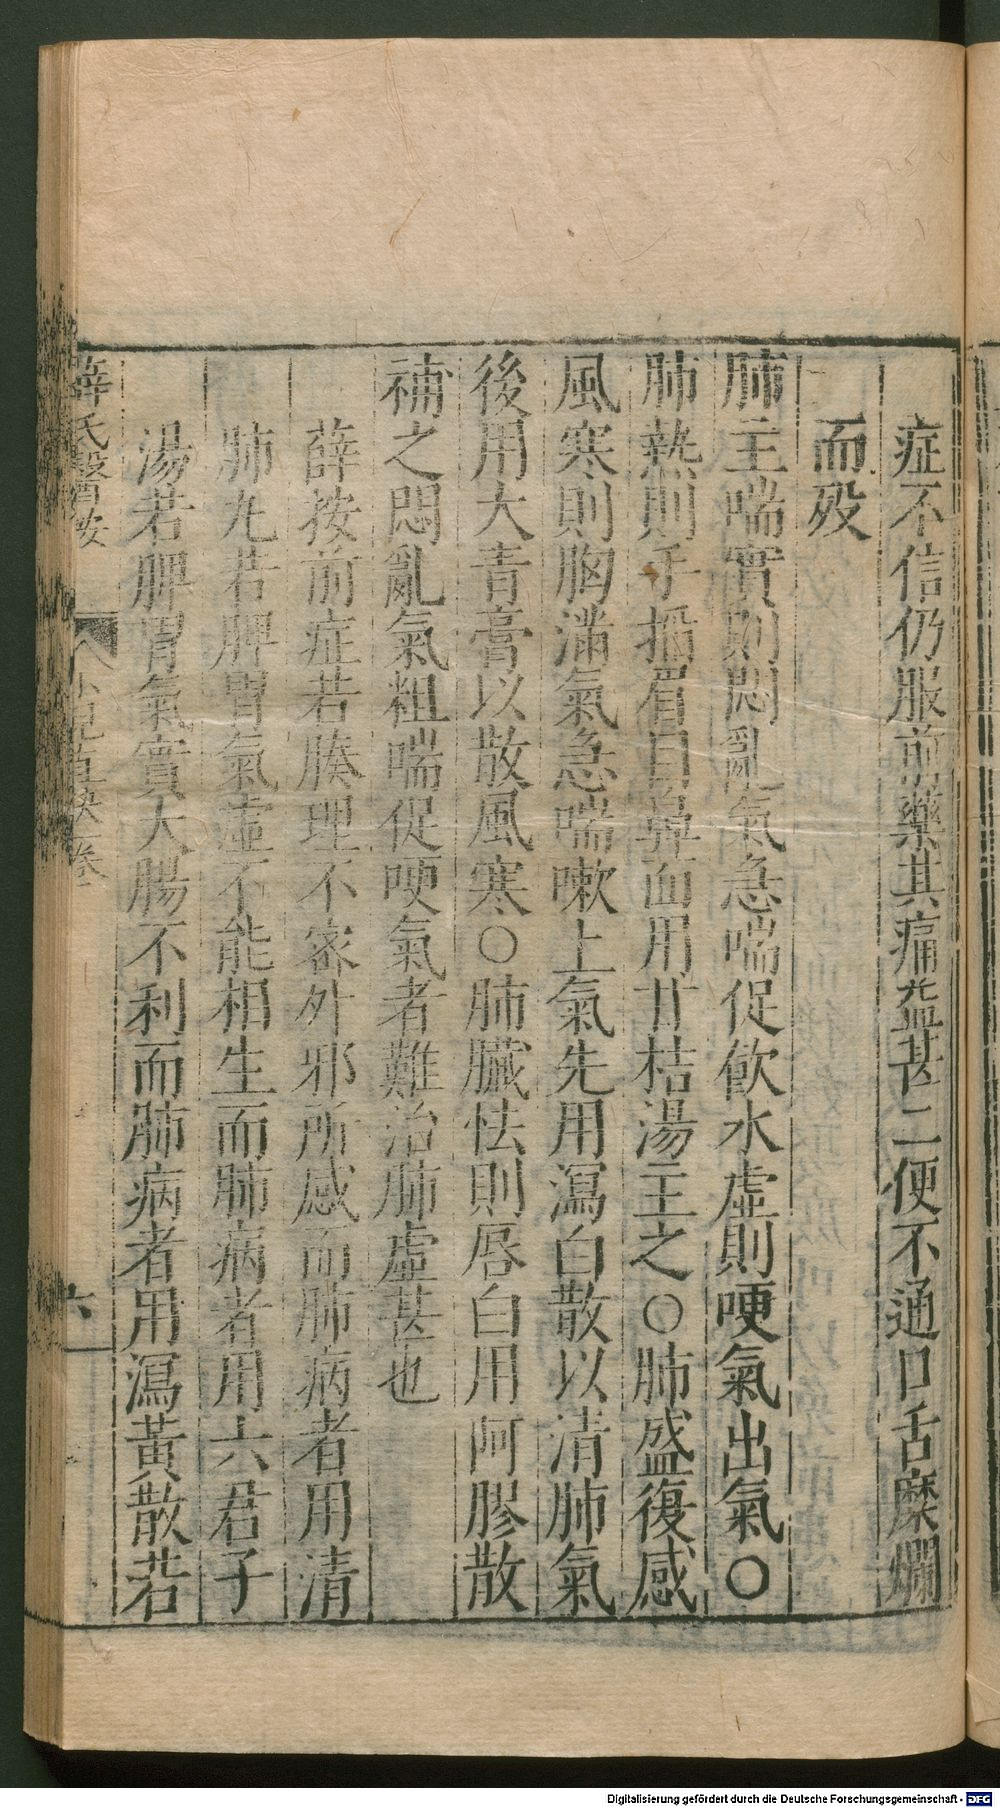 症不信仍服前藥其痛益甚二便不通口舌糜爛
而殁
肺主喘實則悶亂氣急喘促飲水虛則哽氣出氣〇
肺熱則手掐眉目鼻面用甘桔湯主之〇肺盛復感
風寒則胸滿氣急喘嗽上氣先用瀉白散以清肺氣
後用大青膏以散風寒〇肺臟怯則唇白用阿膠散
補之悶亂氣粗喘促哽氣者難治肺虛甚也
薛按前症若腠理不密外邪所感而肺病者用清
肺丸若脾胃氣虛不能相生而肺病者用六君子
湯若脾胃氣實大腸不利而肺病者用瀉黃散若
薛氏醫按 小兒直訣卷一 六
Digitalisierung gefördert durch die Deutsche Forschungsgemeinschaft - DFG